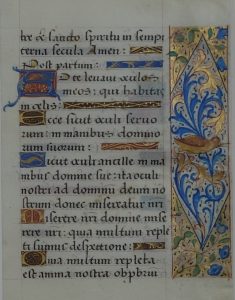 tre et sancto spiritu in semp
terna secula Amen:
Post partum:
Ad te levavi oculos
meos: qui habitas
in celis:
Ecce sicut oculi servo
rum: in manibus domino
rum suorum:
Sicut oculi ancille in ma
nibus domine sue: ita oculi
nostri ad dominum deum nostrum
donec misereatur nri
Miserere nri domine mise
rere nri: quia multum reple
ti sumus despectione:
Quia multum repleta
est anima nostra obprobri